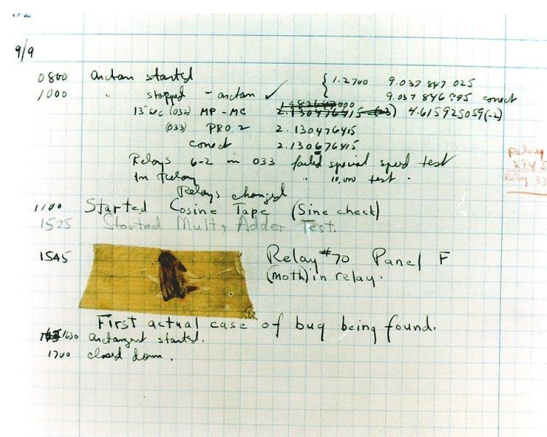 9/9
0800 Antan started { 1.2700 9.037 847 025
1000 " stopped - antan ✓ 9.037 846 995 conect
13"uc (032) MP - MC 2.130476415 4.615925059(-2)
(033) PRO 2 2.130476415
conect 2.130676415
Relays 6-2 in 033 failed special speed test
in Relay " 10.000 test.
Relays changed
Relay
1100 Started Cosine Tape (Sine check)
1525 Started Mult+ Adder Test.
1545 Relay #70 Panel F
(moth) in relay.
First actual case of bug being found.
1630 antangent started.
1700 closed down.